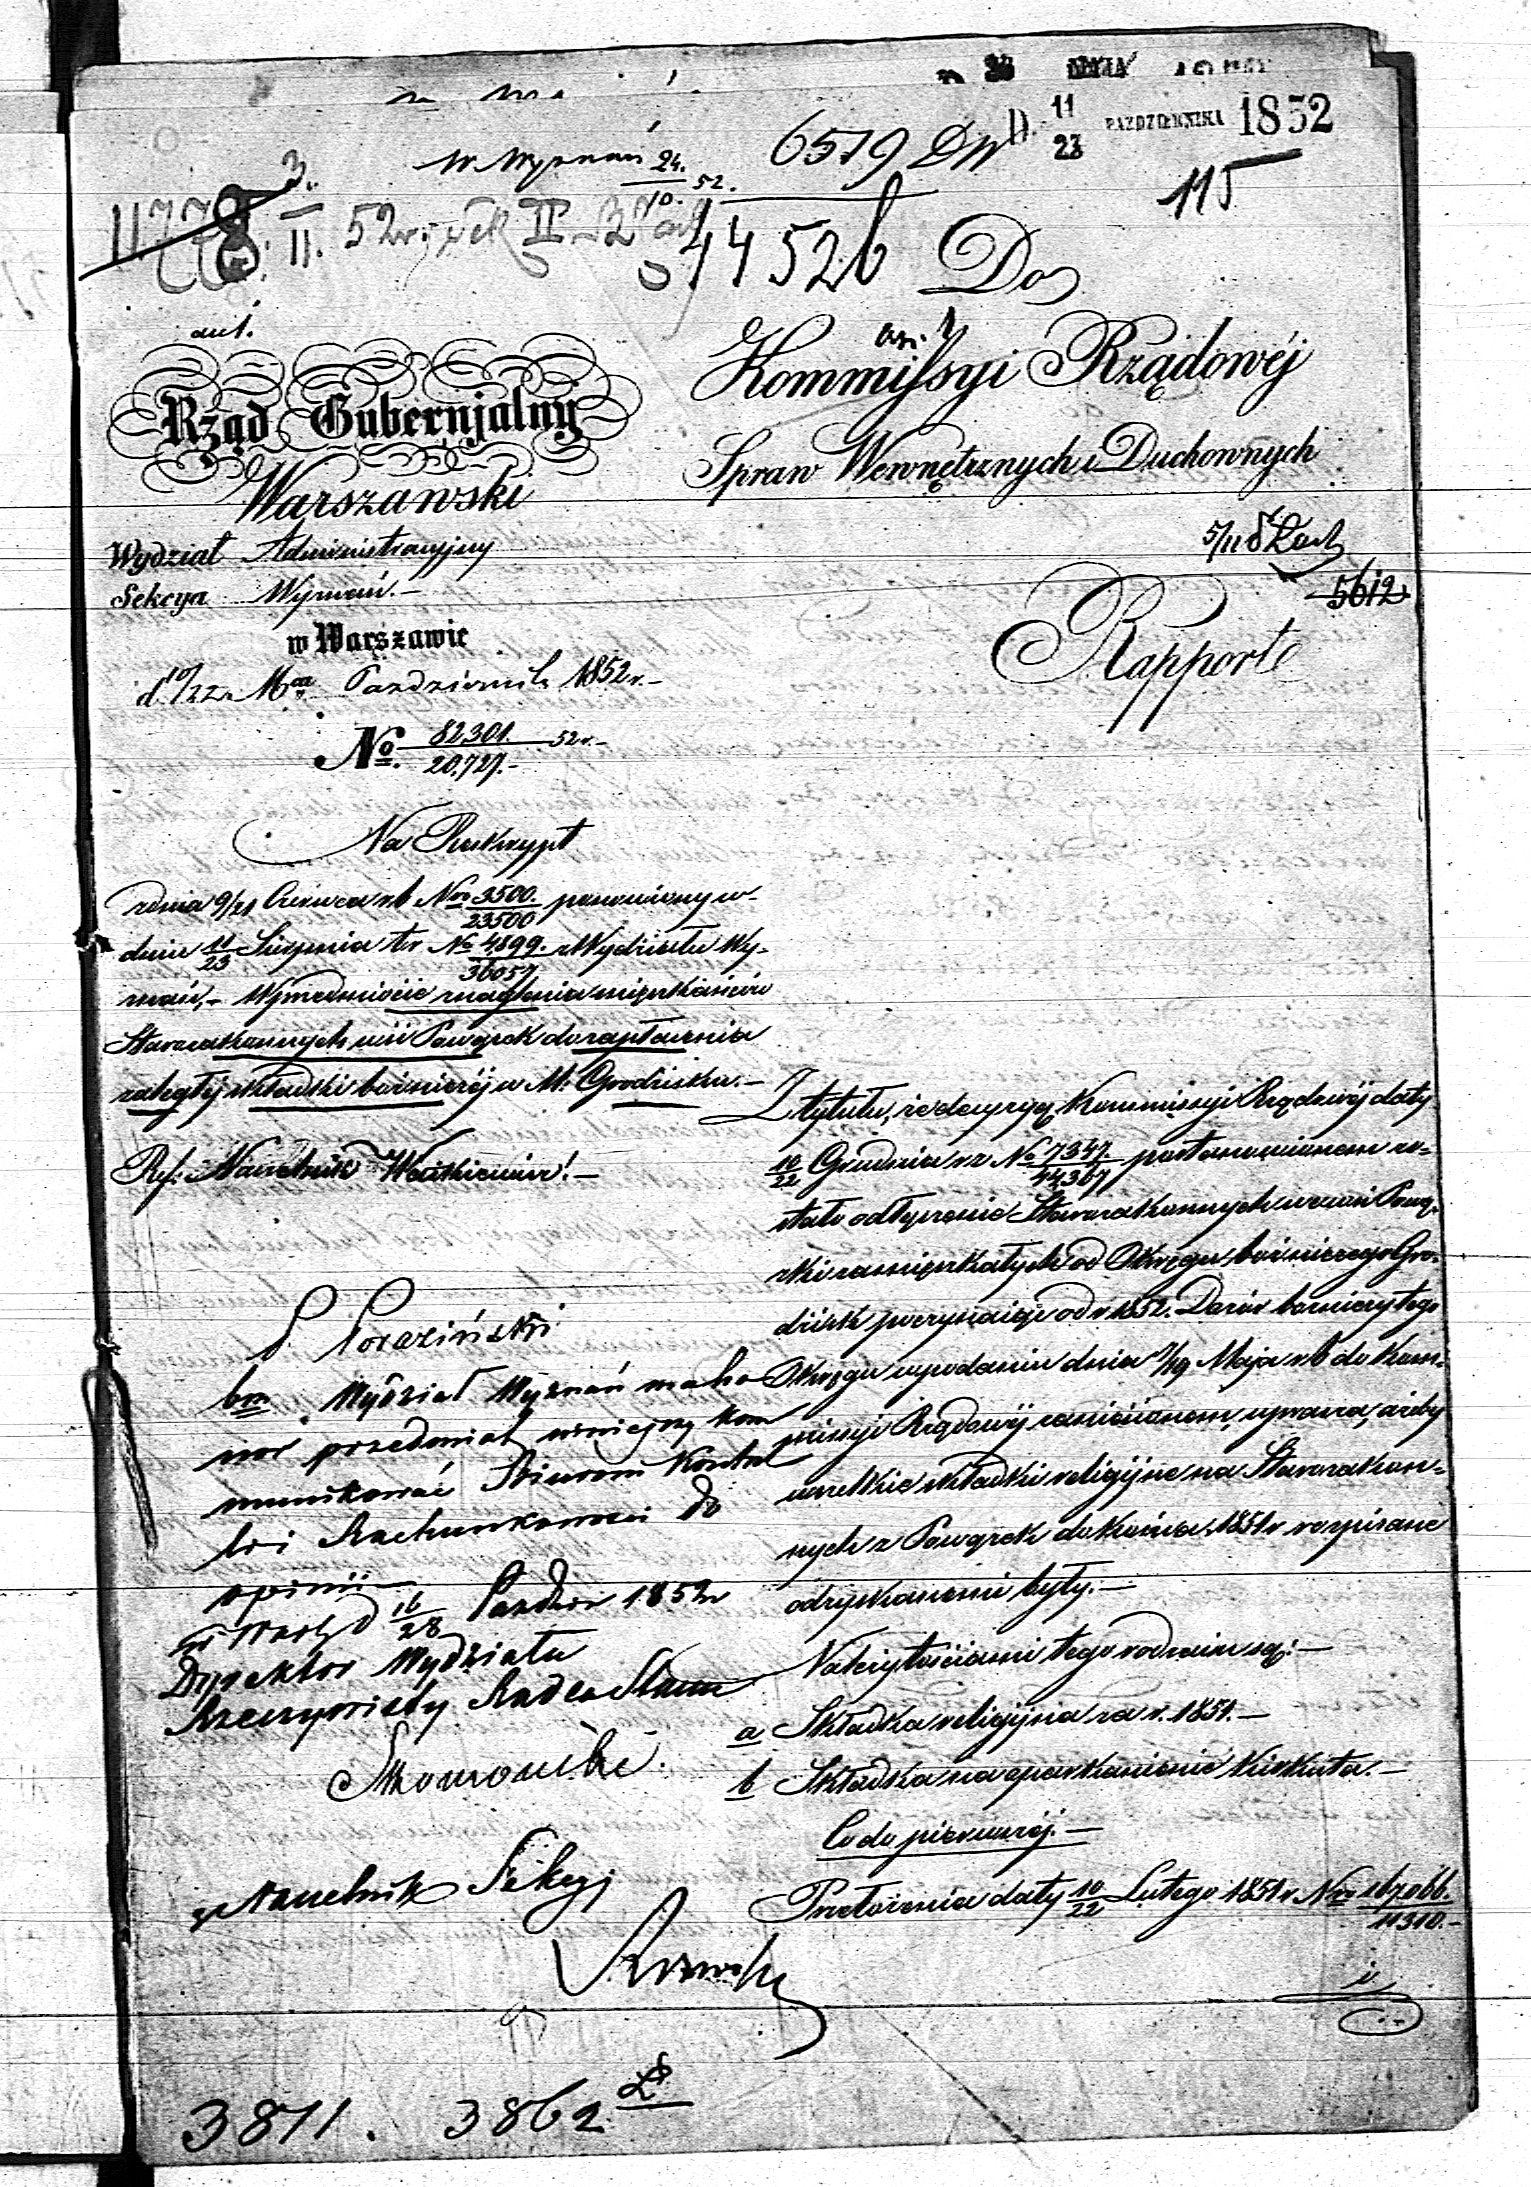 D. 11/23 PAZDZIERNIKA 1852
6579 DW
W. Wyznań 24./10. 52.
115
3./11. 52
44526
Do
Kommissyi Rządowéj
Spraw Wewnętrznych i Duchownych
Rapport
5612
Rząd Gubernjalny
Warszawski
Wydział Administracyjny
Sekcya Wyznań.-
w Warszawie
d. 10/22 Mca Października 1852 r.-
No. 82301./20,727.- 52 r.-
Na Reskrypt
z dnia 9/21 Czerwca r b Nro 3500./23500 ponowiony w
dniu 11/23 Sierpnia t r No 4899./36057 z Wydziału Wy-
znań,- W przedmiocie znaglenia mieszkańców
Starozakonnych wsi Powązek do zapłacenia
zaległéj składki bóżniczéj w M: Grodzisku.-
Ref: Naczelnik Woitkiewicz!-
Z tytułu, że decyzyą Kommissyi Rządowéj daty
10/22 Grudnia r z No 7347./44,367 postanowionem zo-
stało odłączenie Starozakonnych we wsi Pową-
zki zamieszkałych od Okręgu bóżniczego Gro-
dzisk poczynając od r 1852. Dozór bóżniczy tego
Okręgu w podaniu dnia 7/19 Maja r b do Kom-
missyi Rządowéj zaniesionem, uprasza, ażeby
wszelkie składki religijne na Starozakon-
nych z Powązek do końca 1851 r rozpisane
odzyskanemi były.-
Należytościami tego rodzaju są:-
a Składka religijna za r. 1851.-
b Składka na oparkanienie Kirkuta.-
Co do pierwszéj.-
Przełożenia daty 10/22 Lutego 1851 r. Nro 167,066./11310.-
P. Poraziński
Wydział Wyznań ma ho-
nor przedmiot niniejszy kom
munikować Biurom Kontrol
li i Rachunkowości do
opinii
w Warsz d 16/28 Paździer 1852 r
Dyrektor Wydziału
Rzeczywisty Radca Stanu
z Naczelnik Sekcyi
3871. 3862